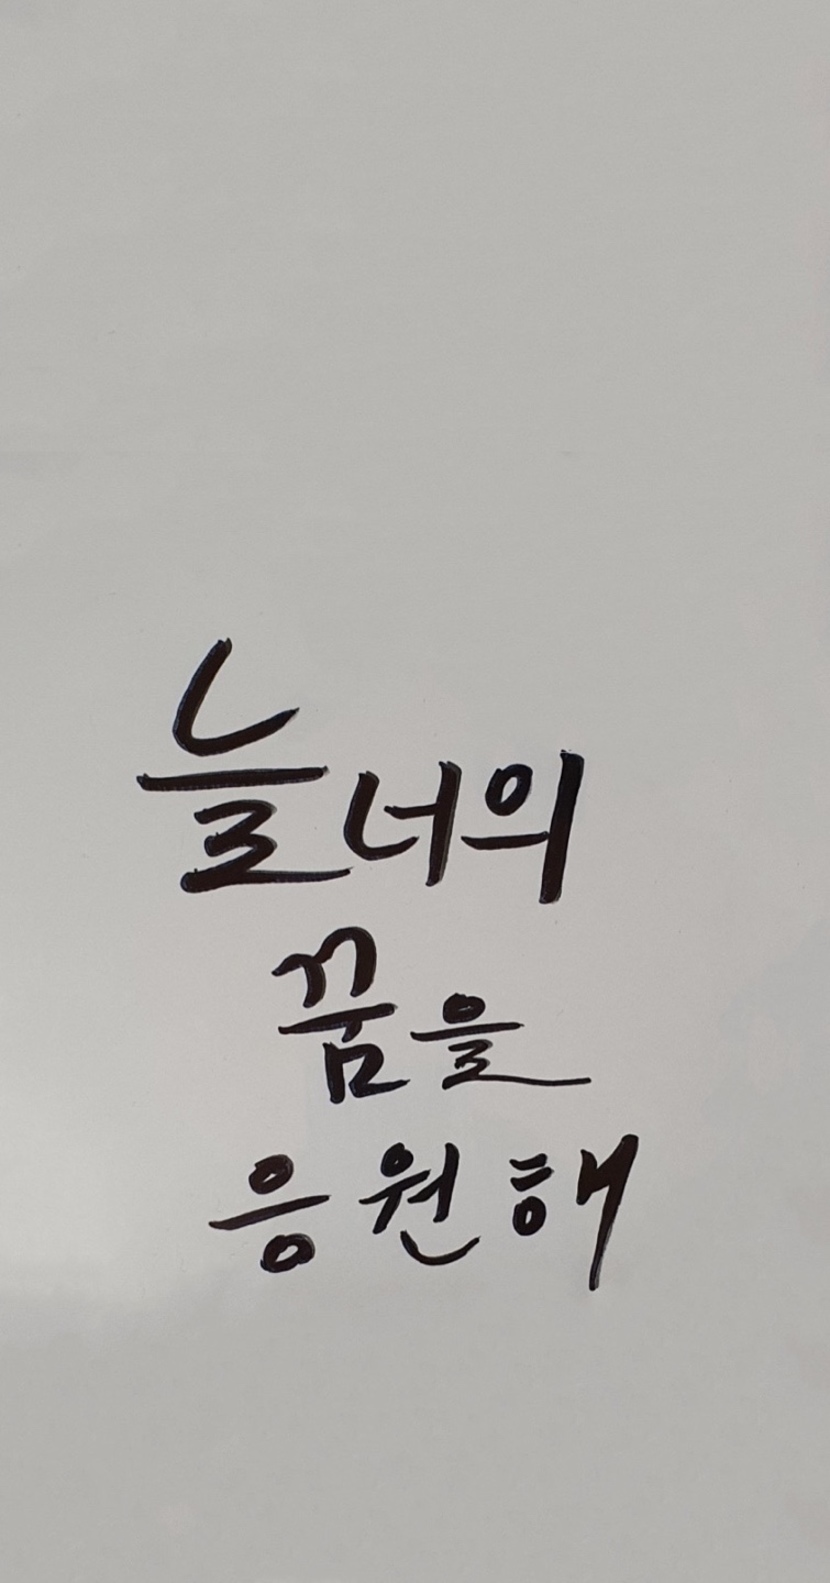 늘 너의
꿈을
응원해